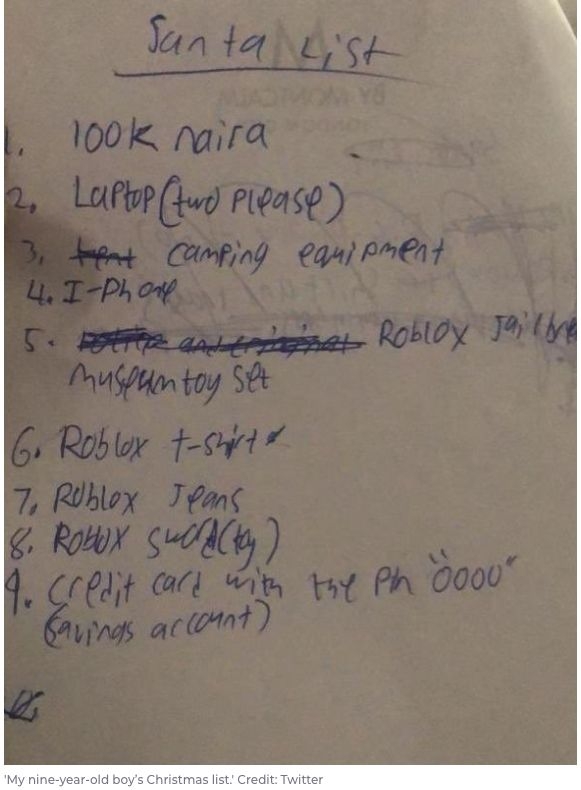 Santa List
1. 100k naira
2. Laptop (two please)
3. tent camping equipment
4. I-Phone
5. Roblox Jailbre
museum toy set
6. Roblox t-shirt
7. Roblox Jeans
8. Roblox sword (toy)
9. credit card with the Pin "0000"
(savings account)
'My nine-year-old boy's Christmas list.' Credit: Twitter